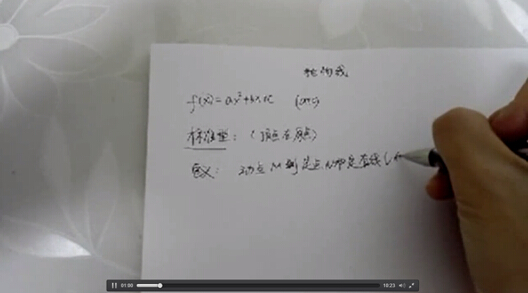 抛物线
f(x)=ax²+bx+c (a≠0)
标准型:(顶点在原点)
定义: 动点M到定点 和定直线l
01:00
10:23